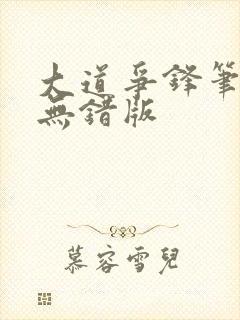 大道爭鋒筆
無錯版
慕容雪兒